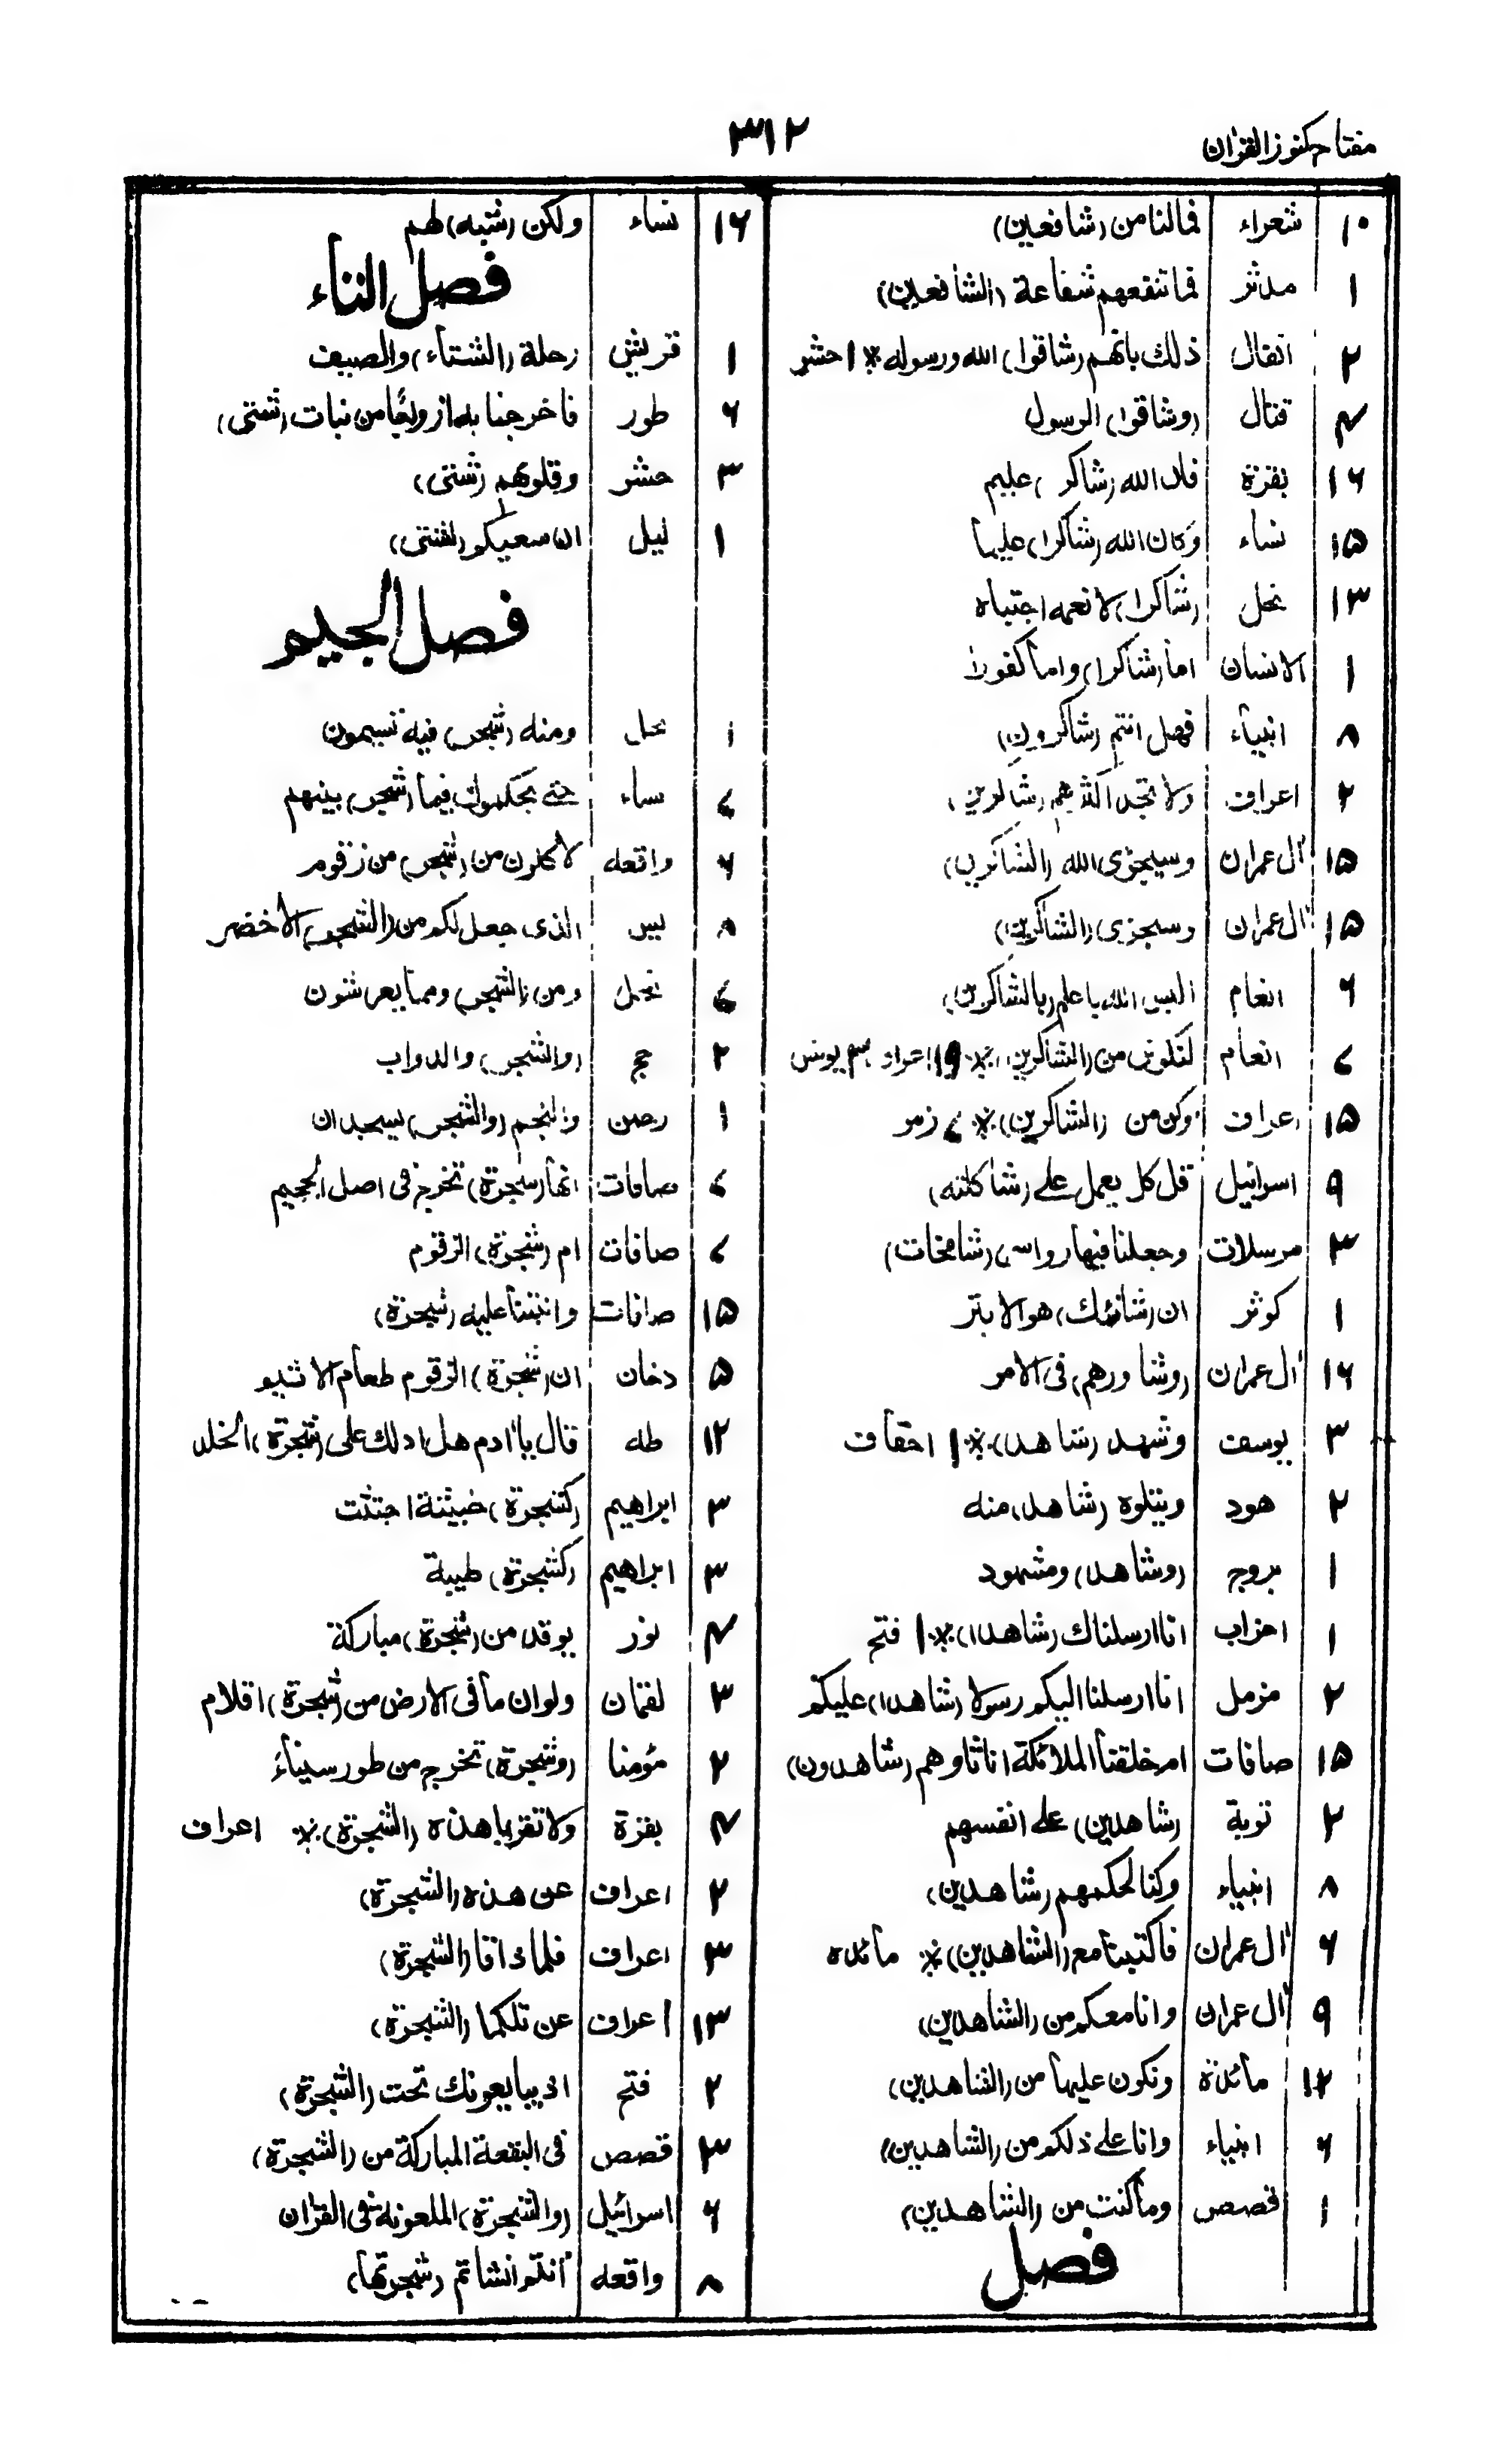 مفتاح كنوز القرآن
٣١٢
١٠ شعراء فمالنا من (شافعين)
١ مدثر فما تنفعهم شفاعة (الشافعين)
٢ انفال ذلك بانهم (شاقوا) الله ورسوله ※ ١ حشر
٤ قتال (وشاقوا) الرسول
١٦ بقرة فان الله (شاكر) عليم
١٥ نساء وكان الله (شاكرا) عليما
١٣ نحل (شاكرا) لانعمه اجتباه
١ الانسان اما (شاكرا) واما كفورا
٨ انبياء فهل انتم (شاكرون)
٢ اعراف ولا تجد اكثرهم (شاكرين)
١٥ آل عمران وسيجزى الله (الشاكرين)
١٥ آل عمران وسنجزى (الشاكرين)
٦ انعام اليس الله باعلم (بالشاكرين)
٧ انعام لنكونن من (الشاكرين) ※ ١٩ اعراف ٣ يونس
١٥ اعراف وكن من (الشاكرين) ※ ٧ زمر
٩ اسرائيل قل كل يعمل على (شاكلته)
٣ مرسلات وجعلنا فيها رواسى (شامخات)
١ كوثر ان (شانئك) هو الابتر
١٦ آل عمران (وشاورهم) فى الامر
٣ يوسف وشهد (شاهد) ※ ١ احقاف
٢ هود ويتلوه (شاهد) منه
١ بروج (وشاهد) ومشهود
١ احزاب انا ارسلناك (شاهدا) ※ ١ فتح
٢ مزمل انا ارسلنا اليكم رسولا (شاهدا) عليكم
١٥ صافات ام خلقنا الملائكة اناثا وهم (شاهدون)
٢ توبة (شاهدين) على انفسهم
٨ انبياء وكنا لحكمهم (شاهدين)
٦ آل عمران فاكتبنا مع (الشاهدين) ※ مائده
٩ آل عمران وانا معكم من (الشاهدين)
١٢ مائدة ونكون عليها من (الشاهدين)
٦ انبياء وانا على ذلكم من (الشاهدين)
١ قصص وما كنت من (الشاهدين)
فصل
١٦ نساء ولكن (شبه) لهم
فصل التاء
١ قريش رحلة (الشتاء) والصيف
٦ طور فاخرجنا به ازواجا من نبات (شتى)
٣ حشر وقلوبهم (شتى)
١ ليل ان سعيكم (لشتى)
فصل الجيم
١ نحل ومنه (شجر) فيه تسيمون
٧ نساء حتى يحكموك فيما (شجر) بينهم
٢ واقعه لاكلون من (شجر) من زقوم
٨ يس الذى جعل لكم من (الشجر) الاخضر
٧ نحل ومن (الشجر) ومما يعرشون
٢ حج (والشجر) والدواب
١ رحمن والنجم (والشجر) يسجدان
٧ صافات انها (شجرة) تخرج فى اصل الجحيم
٧ صافات ام (شجرة) الزقوم
١٥ صافات وانبتنا عليه (شجرة)
٥ دخان ان (شجرة) الزقوم طعام الاثيم
١٢ طه قال يا ادم هل ادلك على (شجرة) الخلد
٣ ابراهيم (كشجرة) خبيثة اجتثت
٣ ابراهيم (كشجرة) طيبة
٤ نور يوقد من (شجرة) مباركة
٣ لقمان ولو ان ما فى الارض من (شجرة) اقلام
٢ مؤمنا (وشجرة) تخرج من طور سيناء
٤ بقرة ولا تقربا هذه (الشجرة) ※ اعراف
٢ اعراف عن هذه (الشجرة)
٣ اعراف فلما ذاقا (الشجرة)
١٣ اعراف عن تلكما (الشجرة)
٢ فتح اذ يبايعونك تحت (الشجرة)
٣ قصص فى البقعة المباركة من (الشجرة)
٦ اسرائيل (والشجرة) الملعونة فى القرآن
٨ واقعه ءانتم انشاتم (شجرتها)